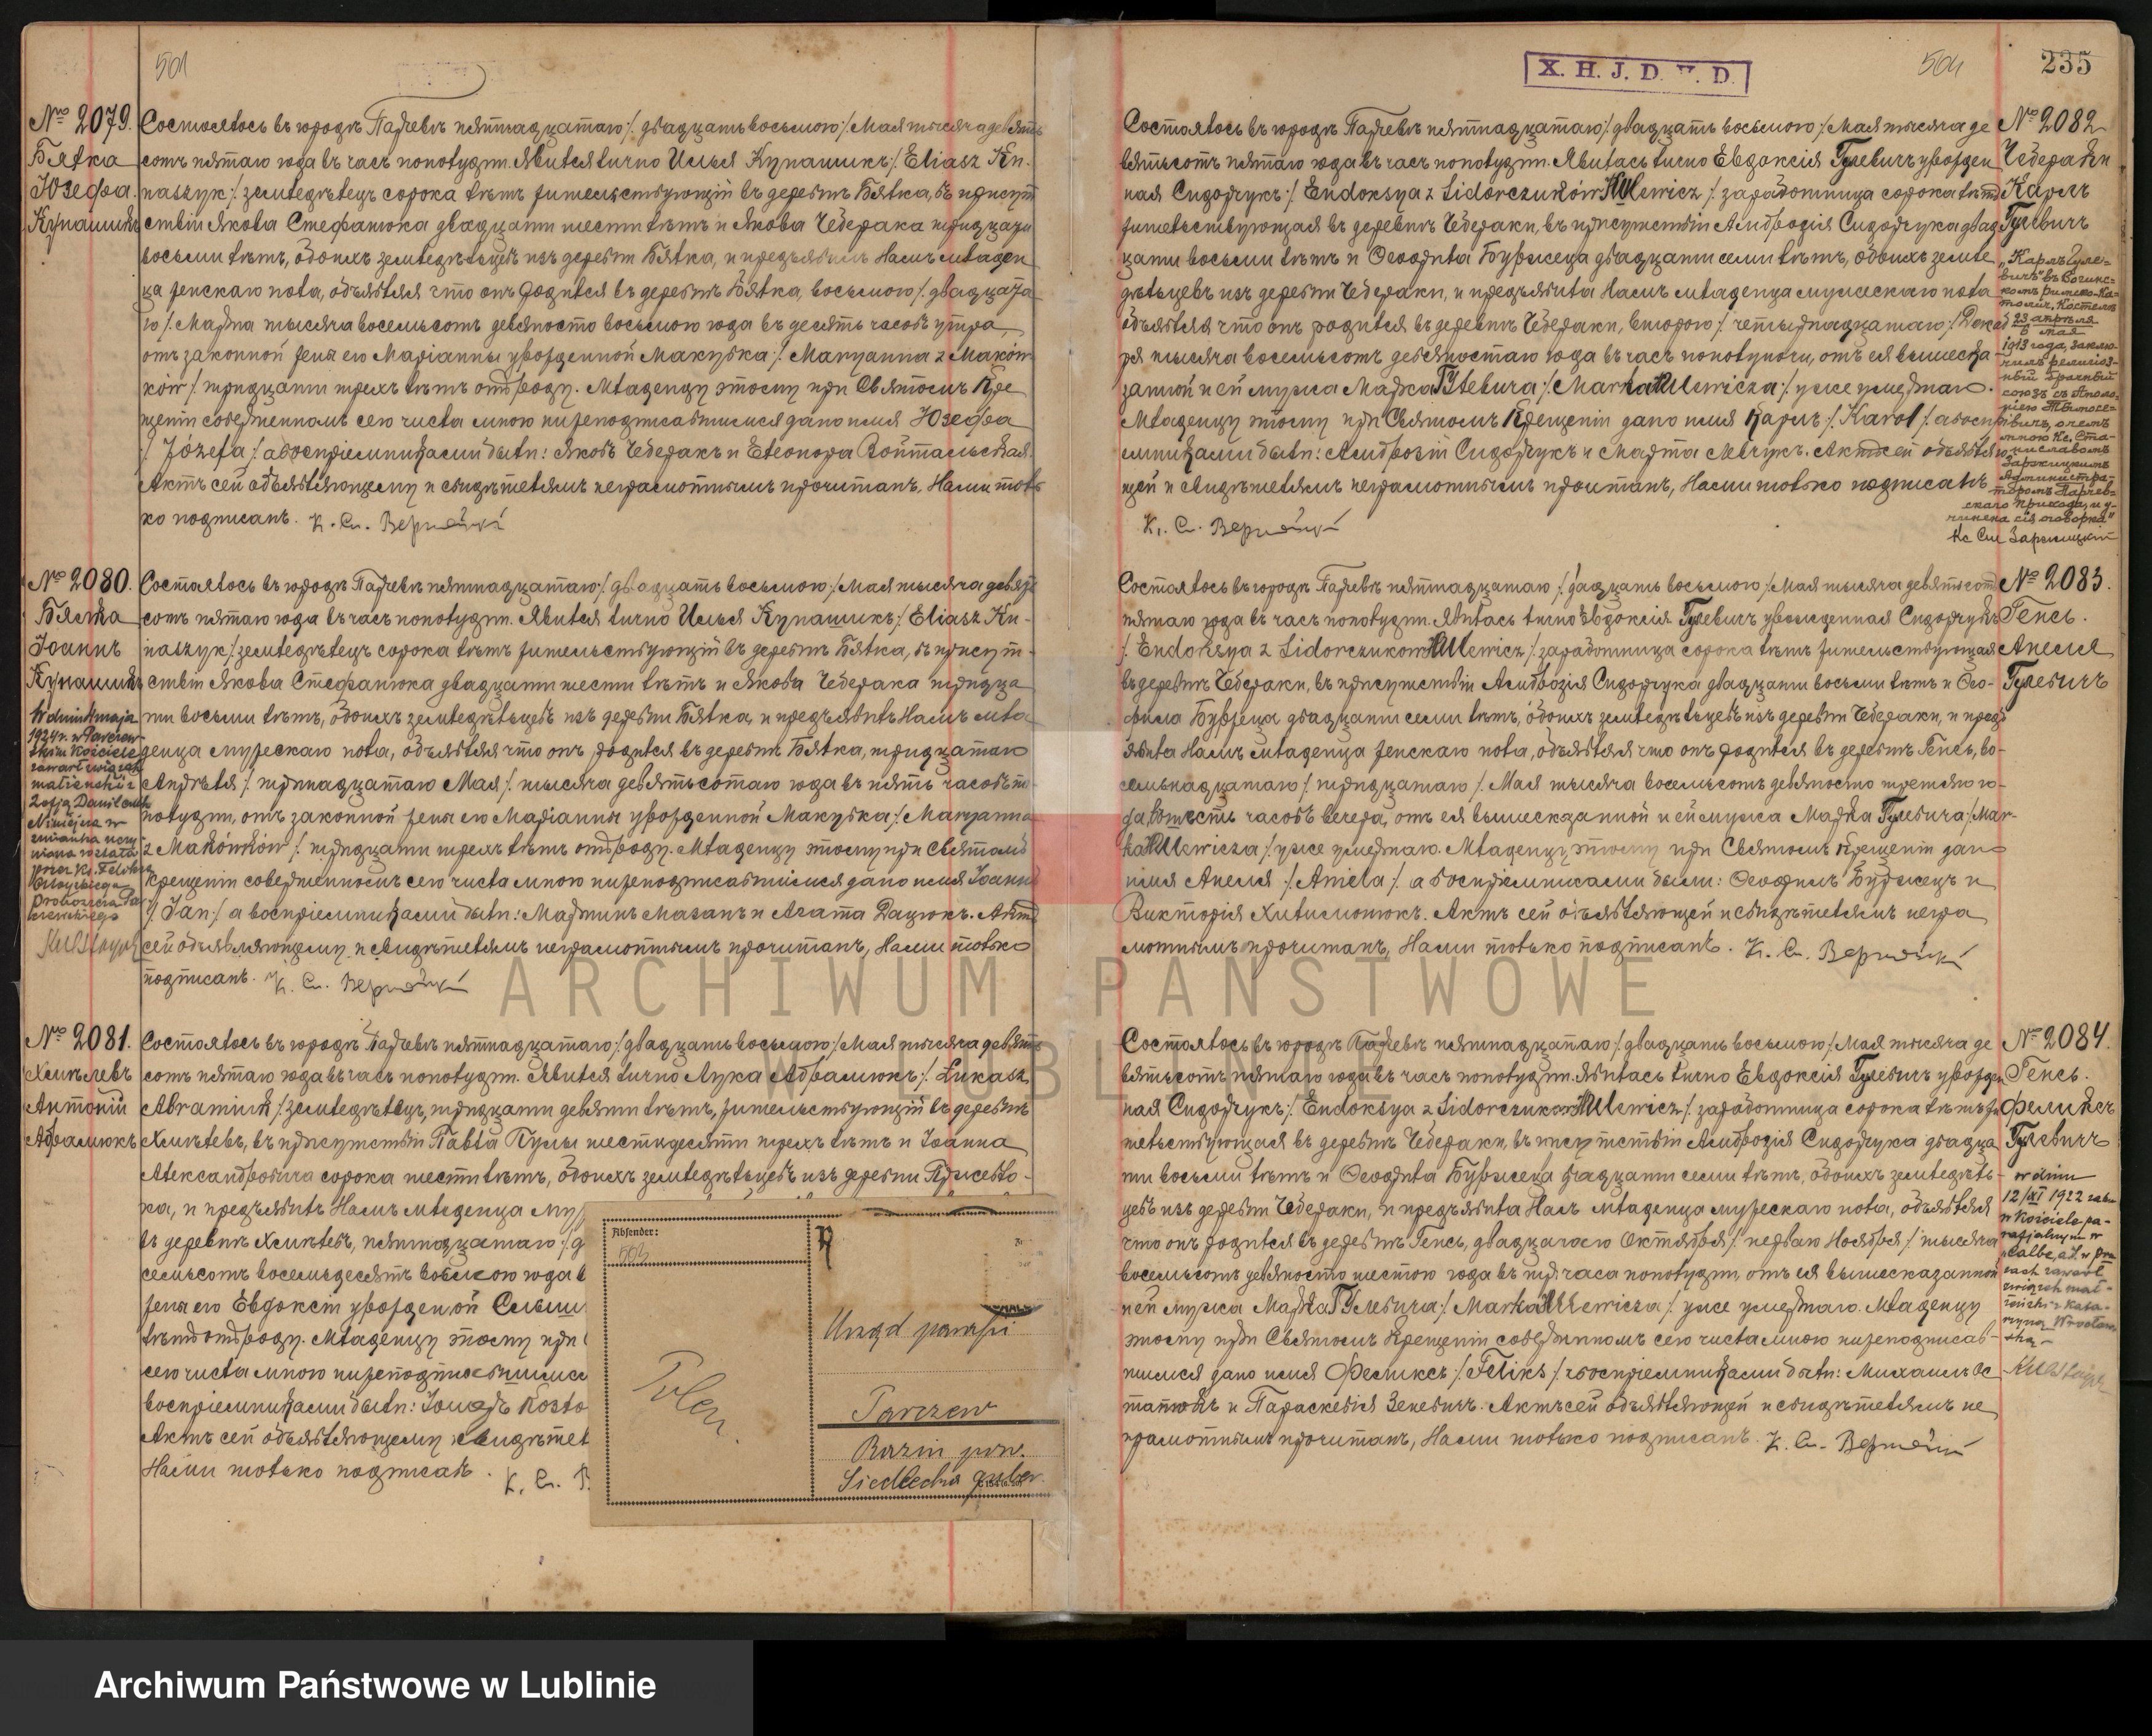 501
№ 2079.
Бятка
Юзефа
Купашикъ
Состоялось въ городѣ Парчевѣ пятнадцатаго /: двадцать восьмого :/ Мая тысяча девять
сотъ пятаго года въ часъ пополудни. Явился лично Илья Купашикъ /: Eliasz Ku-
paszyk :/ земледѣлецъ сорока лѣтъ жительствующій въ деревнѣ Бятка, въ присут
ствіи Якова Стефанюка двадцати шести лѣтъ и Якова Чеберака тридцати
восьми лѣтъ, обоихъ земледѣльцевъ изъ деревни Бятка, и предъявилъ Намъ младен
ца женскаго пола, объявляя что онъ родился въ деревнѣ Бятка, восьмого /: двадцата
го :/ Марта тысяча восемьсотъ девяносто восьмого года въ десять часовъ утра,
отъ законной жены его Маріанны урожденной Макувка /: Maryanna z Maków-
ków :/ тридцати трехъ лѣтъ отъ роду. Младенцу этому при Святомъ Кре
щеніи совершенномъ сего числа мною нижеподписавшимся дано имя Юзефа
/: Józefa :/ а воспріемниками были: Яковъ Чеберакъ и Елеонора Войтальская.
Актъ сей объявляющему и свидѣтелямъ неграмотнымъ прочитанъ, Нами толь
ко подписанъ.
№ 2080.
Бятка
Іоаннъ
Купашикъ
W dniu maja
1924 r. w Parczew-
skim Kościele
zawarł związek
małżeński z
Zofją Daniluch
Niniejsza w
zmianka uczy-
niona została
przez Ks.
proboszcza Par-
czewskiego
Состоялось въ городѣ Парчевѣ пятнадцатаго /: двадцать восьмого :/ Мая тысяча девять
сотъ пятаго года въ часъ пополудни. Явился лично Илья Купашикъ /: Eliasz Ku-
paszyk :/ земледѣлецъ сорока лѣтъ жительствующій въ деревнѣ Бятка, въ присут-
ствіи Якова Стефанюка двадцати шести лѣтъ и Якова Чеберака тридца
ти восьми лѣтъ, обоихъ земледѣльцевъ изъ деревни Бятка, и предъявилъ Намъ мла
денца мужескаго пола, объявляя что онъ родился въ деревнѣ Бятка, тридцатаго
Апрѣля /: тринадцатаго Мая :/ тысяча девятьсотаго года въ пять часовъ по-
полудни, отъ законной жены его Маріанны урожденной Макувка /: Maryanna
z Makówków :/ тридцати трехъ лѣтъ отъ роду. Младенцу этому при Святомъ
Крещеніи совершенномъ сего числа мною нижеподписавшимся дано имя Іоаннъ
/: Jan :/ а воспріемниками были: Мартинъ Мазанъ и Агата Дацюкъ. Актъ
сей объявляющему и свидѣтелямъ неграмотнымъ прочитанъ, Нами только
подписанъ.
№ 2081.
Хмѣлевъ
Антоній
Абрамюкъ
Состоялось въ городѣ Парчевѣ пятнадцатаго /: двадцать восьмого :/ Мая тысяча девять
сотъ пятаго года въ часъ пополудни. Явился лично Лука Абрамюкъ /: Łukasz
Abramiuk :/ земледѣлецъ, тридцати девяти лѣтъ, жительствующій въ деревнѣ
Хмѣлевъ, въ присутствіи Павла Кулы шестидесяти трехъ лѣтъ и Іоанна
Александровича сорока шести лѣтъ, обоихъ земледѣльцевъ изъ деревни
ка, и предъявилъ Намъ младенца муж
въ деревнѣ Хмѣлевъ, пятнадцатаго /:
семьсотъ восемьдесятъ восьмого года
жены его Евдоксіи урожденной
лѣтъ отъ роду. Младенцу этому при
сего числа мною нижеподписавшимся
воспріемниками были:
Актъ сей объявляющему и свидѣтел
Нами только подписанъ.
Absender:
503
Polen.
Urząd parafii
Parczew
Razin pow.
Siedlecka guber.
X. H. J. D. V. D.
504
235
№ 2082
Чебераки
Карлъ
Гулевичъ
"Карлъ Гуле-
вичъ" въ Вогинс-
комъ римско-ка-
толич. костелѣ
23 апрѣля
6 мая
1913 года, заклю-
чилъ религіоз-
ный брачный
союзъ съ Аполо-
ніею
вичъ, о чемъ
мною Кс. Ста-
ниславомъ
Заржицкимъ
Администра-
торомъ Парчев-
скаго прихода, и у-
чинена сія оговорка"
Кс Ст Заржицкій
Состоялось въ городѣ Парчевѣ пятнадцатаго /: двадцать восьмого :/ Мая тысяча де
вятьсотъ пятаго года въ часъ пополудни. Явилась лично Евдоксія Гулевичъ урожден
ная Сидорчукъ /: Eudoksya z Sidorczuków Hulewicz :/ заработница сорока лѣтъ
жительствующая въ деревнѣ Чебераки, въ присутствіи Амброзія Сидорчука двад
цати восьми лѣтъ и Ѳеофила Буржеца двадцати семи лѣтъ, обоихъ земле
дѣльцевъ изъ деревни Чебераки, и предъявила Намъ младенца мужескаго пола
объявляя что онъ родился въ деревнѣ Чебераки, второго /: четырнадцатаго :/ Декаб
ря тысяча восемьсотъ девяностаго года въ часъ пополуночи, отъ ея вышеска
занной и ей мужа Марка Гулевича /: Marka Hulewicza :/ уже умершаго.
Младенцу этому при Святомъ Крещеніи дано имя Карлъ /: Karol :/ а воспрі
емниками были: Амброзій Сидорчукъ и Марта Мевчукъ. Актъ сей объявляю
щей и свидѣтелямъ неграмотнымъ прочитанъ, Нами только подписанъ
№ 2083.
Генсь.
Анеля
Гулевичъ
Состоялось въ городѣ Парчевѣ пятнадцатаго /: двадцать восьмого :/ Мая тысяча девятьсотъ
пятаго года въ часъ пополудни. Явилась лично Евдоксія Гулевичъ урожденная Сидорчукъ
/: Eudoksya z Sidorczuków Hulewicz :/ заработница сорока лѣтъ жительствующая
въ деревнѣ Чебераки, въ присутствіи Амброзія Сидорчука двадцати восьми лѣтъ и Ѳео-
фила Буржеца двадцати семи лѣтъ, обоихъ земледѣльцевъ изъ деревни Чебераки, и предъ
явила Намъ младенца женскаго пола, объявляя что онъ родился въ деревнѣ Генсь, во-
семьнадцатаго /: тридцатаго :/ Мая тысяча восемьсотъ девяносто третьяго го-
да, въ шесть часовъ вечера, отъ ея вышесказанной и ей мужа Марка Гулевича /: Mar-
ka Hulewicza :/ уже умершаго. Младенцу этому при Святомъ Крещеніи дано
имя Анеля /: Aniela :/ а воспріемниками были: Ѳеофилъ Буржецъ и
Викторія Хилимонюкъ. Актъ сей объявляющей и свидѣтелямъ негра
мотнымъ прочитанъ, Нами только подписанъ.
№ 2084.
Генсь.
Феликсъ
Гулевичъ
w dniu
12/XI 1922 zaw
w Kościele pa-
rafjalnym w
Calbe, a/S w pru
sach zawarł
związek mał-
żeński z Kata-
rzyną
ską
Состоялось въ городѣ Парчевѣ пятнадцатаго /: двадцать восьмого :/ Мая тысяча де
вятьсотъ пятаго года въ часъ пополудни. Явилась лично Евдоксія Гулевичъ урожден
ная Сидорчукъ /: Eudoksya z Sidorczuków Hulewicz :/ заработница сорока лѣтъ жи
тельствующая въ деревнѣ Чебераки, въ присутствіи Амброзія Сидорчука двадца
ти восьми лѣтъ и Ѳеофила Буржеца двадцати семи лѣтъ, обоихъ земледѣль
цевъ изъ деревни Чебераки, и предъявила Намъ младенца мужескаго пола, объявляя
что онъ родился въ деревнѣ Генсь, двадцатаго Октября /: перваго Ноября :/ тысяча
восемьсотъ девяносто шестого года въ три часа пополудни, отъ ея вышесказанной
и ей мужа Марка Гулевича /: Marka Hulewicza :/ уже умершаго. Младенцу
этому при Святомъ Крещеніи совершенномъ сего числа мною нижеподписав-
шимся дано имя Феликсъ /: Feliks :/ а воспріемниками были: Михаилъ Ос
тапюкъ и Параскевія Зеневичъ. Актъ сей объявляющей и свидѣтелямъ не
грамотнымъ прочитанъ, Нами только подписанъ.
ARCHIWUM PAŃSTWOWE
W LUBLINIE
Archiwum Państwowe w Lublinie